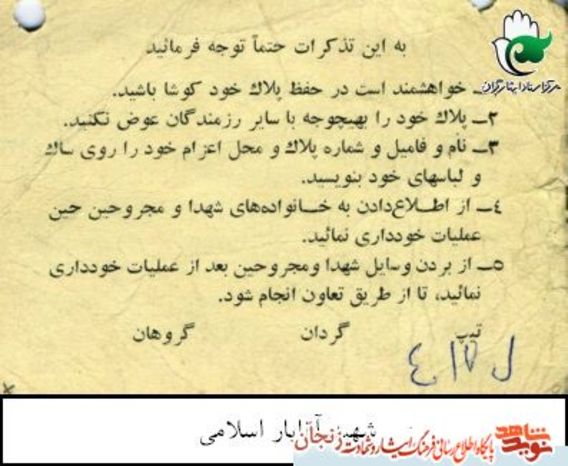 به این تذکرات حتماً توجه فرمائید
ـ خواهشمند است در حفظ پلاك خود کوشا باشید.
۲ـ پلاك خود را بهیچوجه با سایر رزمندگان عوض نکنید.
۳ـ نام و فامیل و شماره پلاك و محل اعزام خود را روی ساك
و لباسهای خود بنویسید.
٤ـ از اطلاع‌دادن به خانواده‌های شهدا و مجروحین حین
عملیات خودداری نمائید.
۵ـ از بردن وسایل شهدا ومجروحین بعد از عملیات خودداری
نمائید، تا از طریق تعاون انجام شود.
تیپ گردان گروهان
مرکز اسناد ایثارگران
شهید آقابار اسلامی
نوید شاهد
پایگاه اطلاع رسانی فرهنگ ایثار و شهادت زنجان